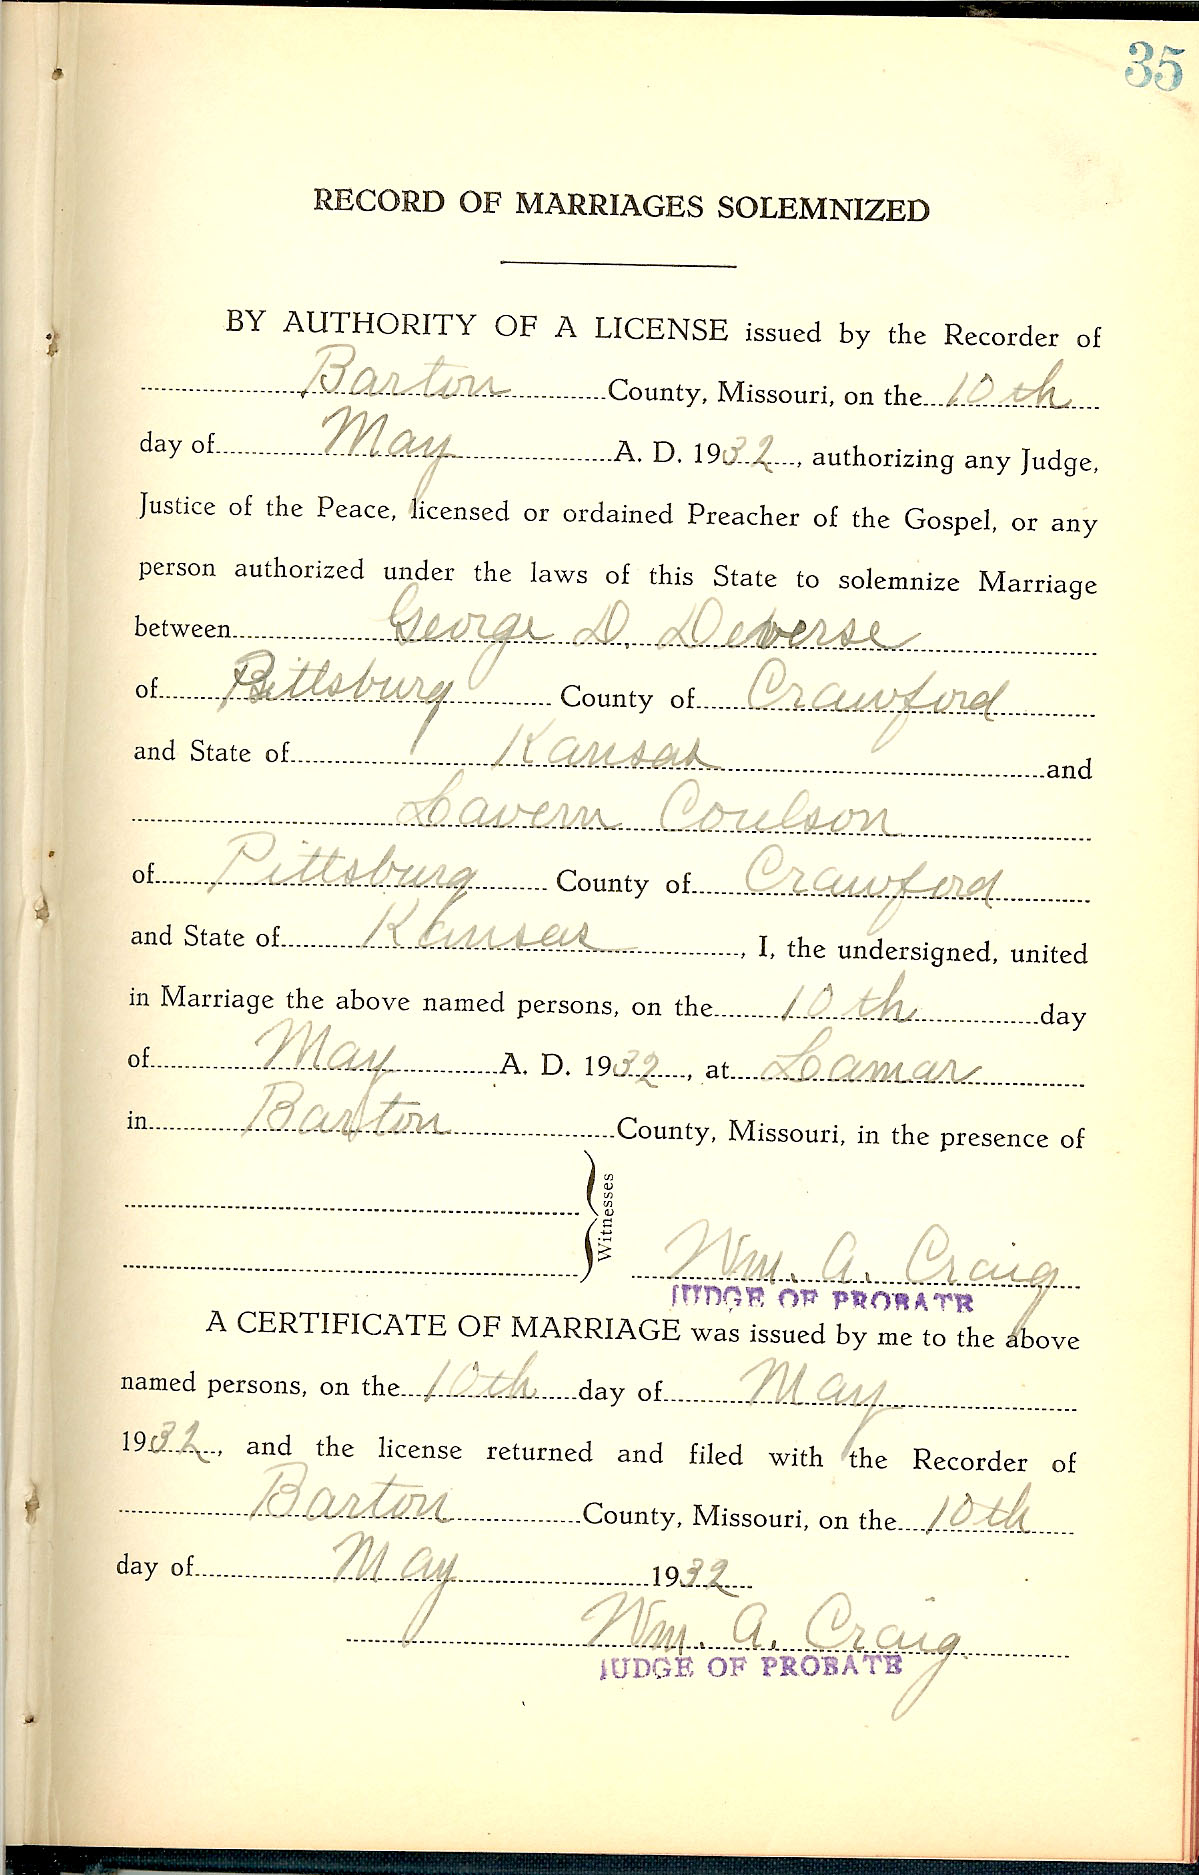 35
RECORD OF MARRIAGES SOLEMNIZED
BY AUTHORITY OF A LICENSE issued by the Recorder of
Barton County, Missouri, on the 10th
day of May A. D. 1932, authorizing any Judge,
Justice of the Peace, licensed or ordained Preacher of the Gospel, or any
person authorized under the laws of this State to solemnize Marriage
between George D. Deverse
of Pittsburg County of Crawford
and State of Kansas and
Lavern Coulson
of Pittsburg County of Crawford
and State of Kansas, I, the undersigned, united
in Marriage the above named persons, on the 10th day
of May A. D. 1932, at Lamar
in Barton County, Missouri, in the presence of
Witnesses
Wm. A. Craig
JUDGE OF PROBATE
A CERTIFICATE OF MARRIAGE was issued by me to the above
named persons, on the 10th day of May
1932, and the license returned and filed with the Recorder of
Barton County, Missouri, on the 10th
day of May 1932
Wm. A. Craig
JUDGE OF PROBATE